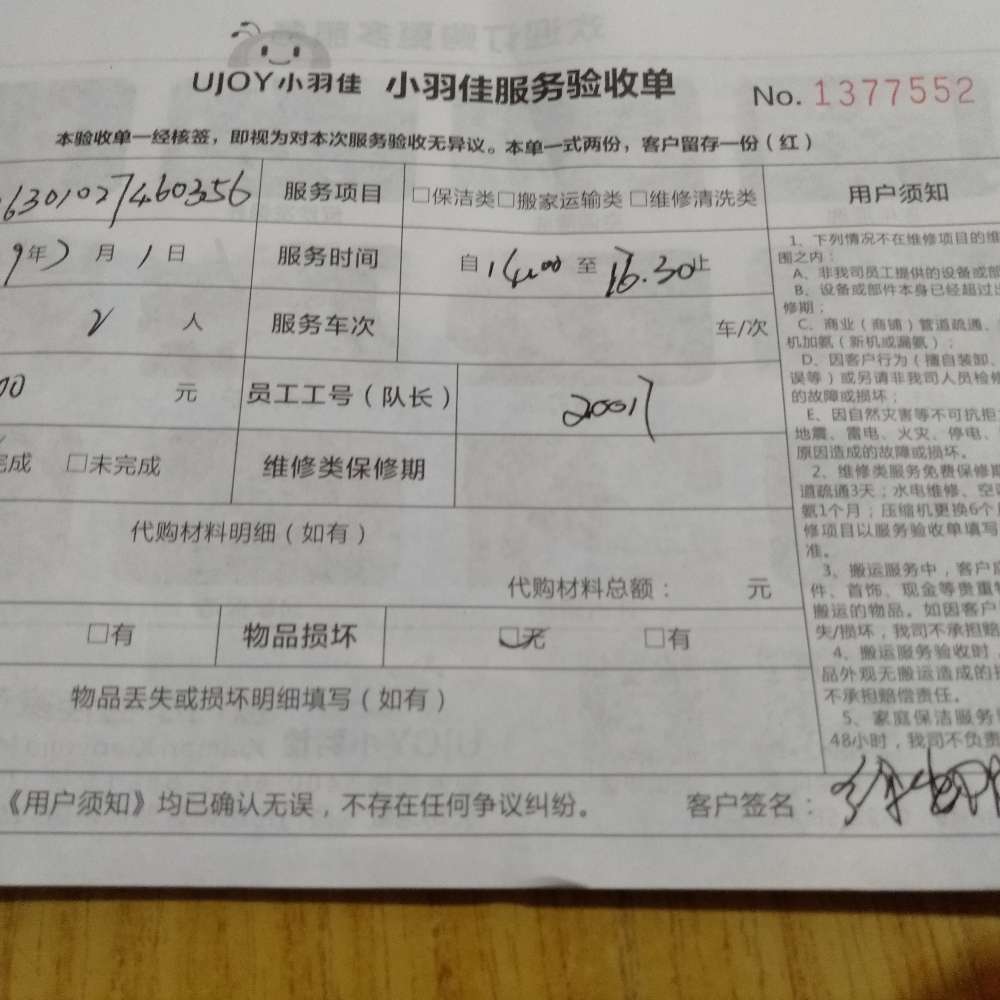 UJOY小羽佳 小羽佳服务验收单 No. 1377552
本验收单一经核签，即视为对本次服务验收无异议。本单一式两份，客户留存一份（红）
6301027460356 服务项目 □保洁类□搬家运输类 □维修清洗类 用户须知
9年 月 1 日 服务时间 自 14:00 至 16.30止
2 人 服务车次 车/次
00 元 员工工号（队长） 20017
完成 □未完成 维修类保修期
代购材料明细（如有）
代购材料总额： 元
□有 物品损坏 □无 □有
物品丢失或损坏明细填写（如有）
《用户须知》均已确认无误，不存在任何争议纠纷。 客户签名：
1、下列情况不在维修项目的维
围之内：
A、非我司员工提供的设备或部
B、设备或部件本身已经超过出
修期；
C、商业（商铺）管道疏通、
机加氨（新机或漏氨）；
D、因客户行为（擅自装卸、
误等）或另请非我司人员检修
的故障或损坏；
E、因自然灾害等不可抗拒
地震、雷电、火灾、停电、
原因造成的故障或损坏。
2、维修类服务免费保修期
道疏通3天；水电维修、空
氨1个月；压缩机更换6个
修项目以服务验收单填写
准。
3、搬运服务中，客户
件、首饰、现金等贵重物
搬运的物品。如因客户
失/损坏，我司不承担赔
4、搬运服务验收时，
品外观无搬运造成的
不承担赔偿责任。
5、家庭保洁服务
48小时，我司不负责